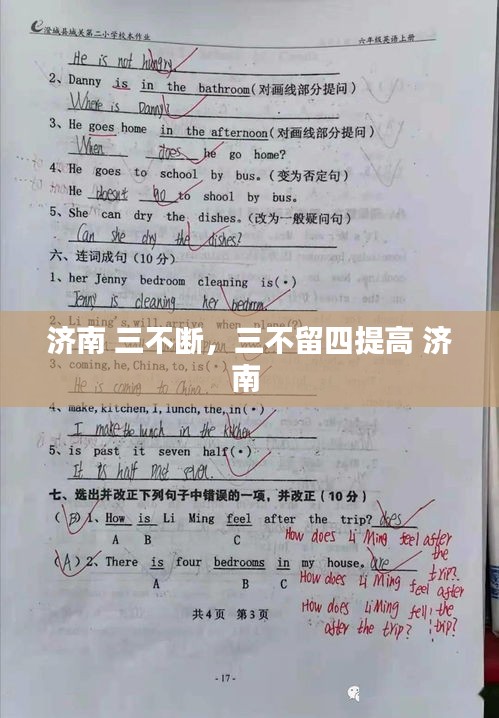 澄城县城关第二小学校本作业 六年级英语上册
He is not hungry.
2、Danny is in the bathroom(对画线部分提问)
Where is Danny?
3、He goes home in the afternoon(对画线部分提问)
When does he go home?
4、He goes to school by bus.(变为否定句)
He doesn't go to shool by bus.
5、She can dry the dishes.(改为一般疑问句)
Can she dry the dishes?
六、连词成句(10分)
1、her Jenny bedroom cleaning is(.)
Jenny is cleaning her bedroom.
2、Li ming's,will,arrive when plane(?)
济南 三不断，三不留四提高 济
南
3、coming,he,China,to,is(.)
He is coming to China.
4、make,kitchen,I,lunch,the,in(.)
I make the lunch in the kitchen
5、is past it seven half(.)
It is half past seven.
七、选出并改正下列句子中错误的一项，并改正(10分)
(B)1、How is Li Ming feel after the trip? does
A B C
How does Li Ming feel after the trip?
(A)2、There is four bedrooms in my house. are
A B C
How does Li Ming feel after the trip?
How does Li Ming fell after the trip?
共4页 第3页
-17-